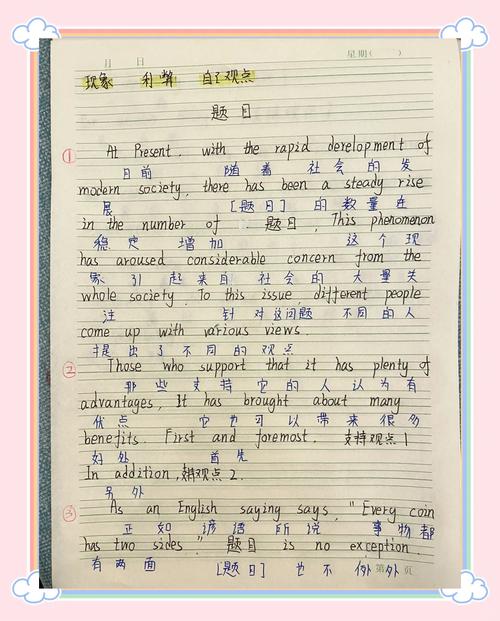 月 日 星期( )
现象 利弊 自己观点
题目
① At Present, with the rapid development of
目前 随着 社会的发
modern society, there has been a steady rise
展 [题目] 的数量在
in the number of 题目, This phenomenon
稳定 增加 这个现
has aroused considerable concern from the
象引起来自社会的大量关
whole society, To this issue, different people
注 针对这问题 不同的人
come up with various views.
提出了不同的观点
② Those who support that it has plenty of
那些支持它的人认为有
advantages, It has brought about many
优点 它也可以带来很多
benefits. First and foremost. 支持观点1
好处 首先
In addition, 观点2.
另外
③ As an English saying says, "Every coin
正如谚语所说 事物都
has two sides." 题目 is no exception.
有两面 [题目] 也不例外
第 页